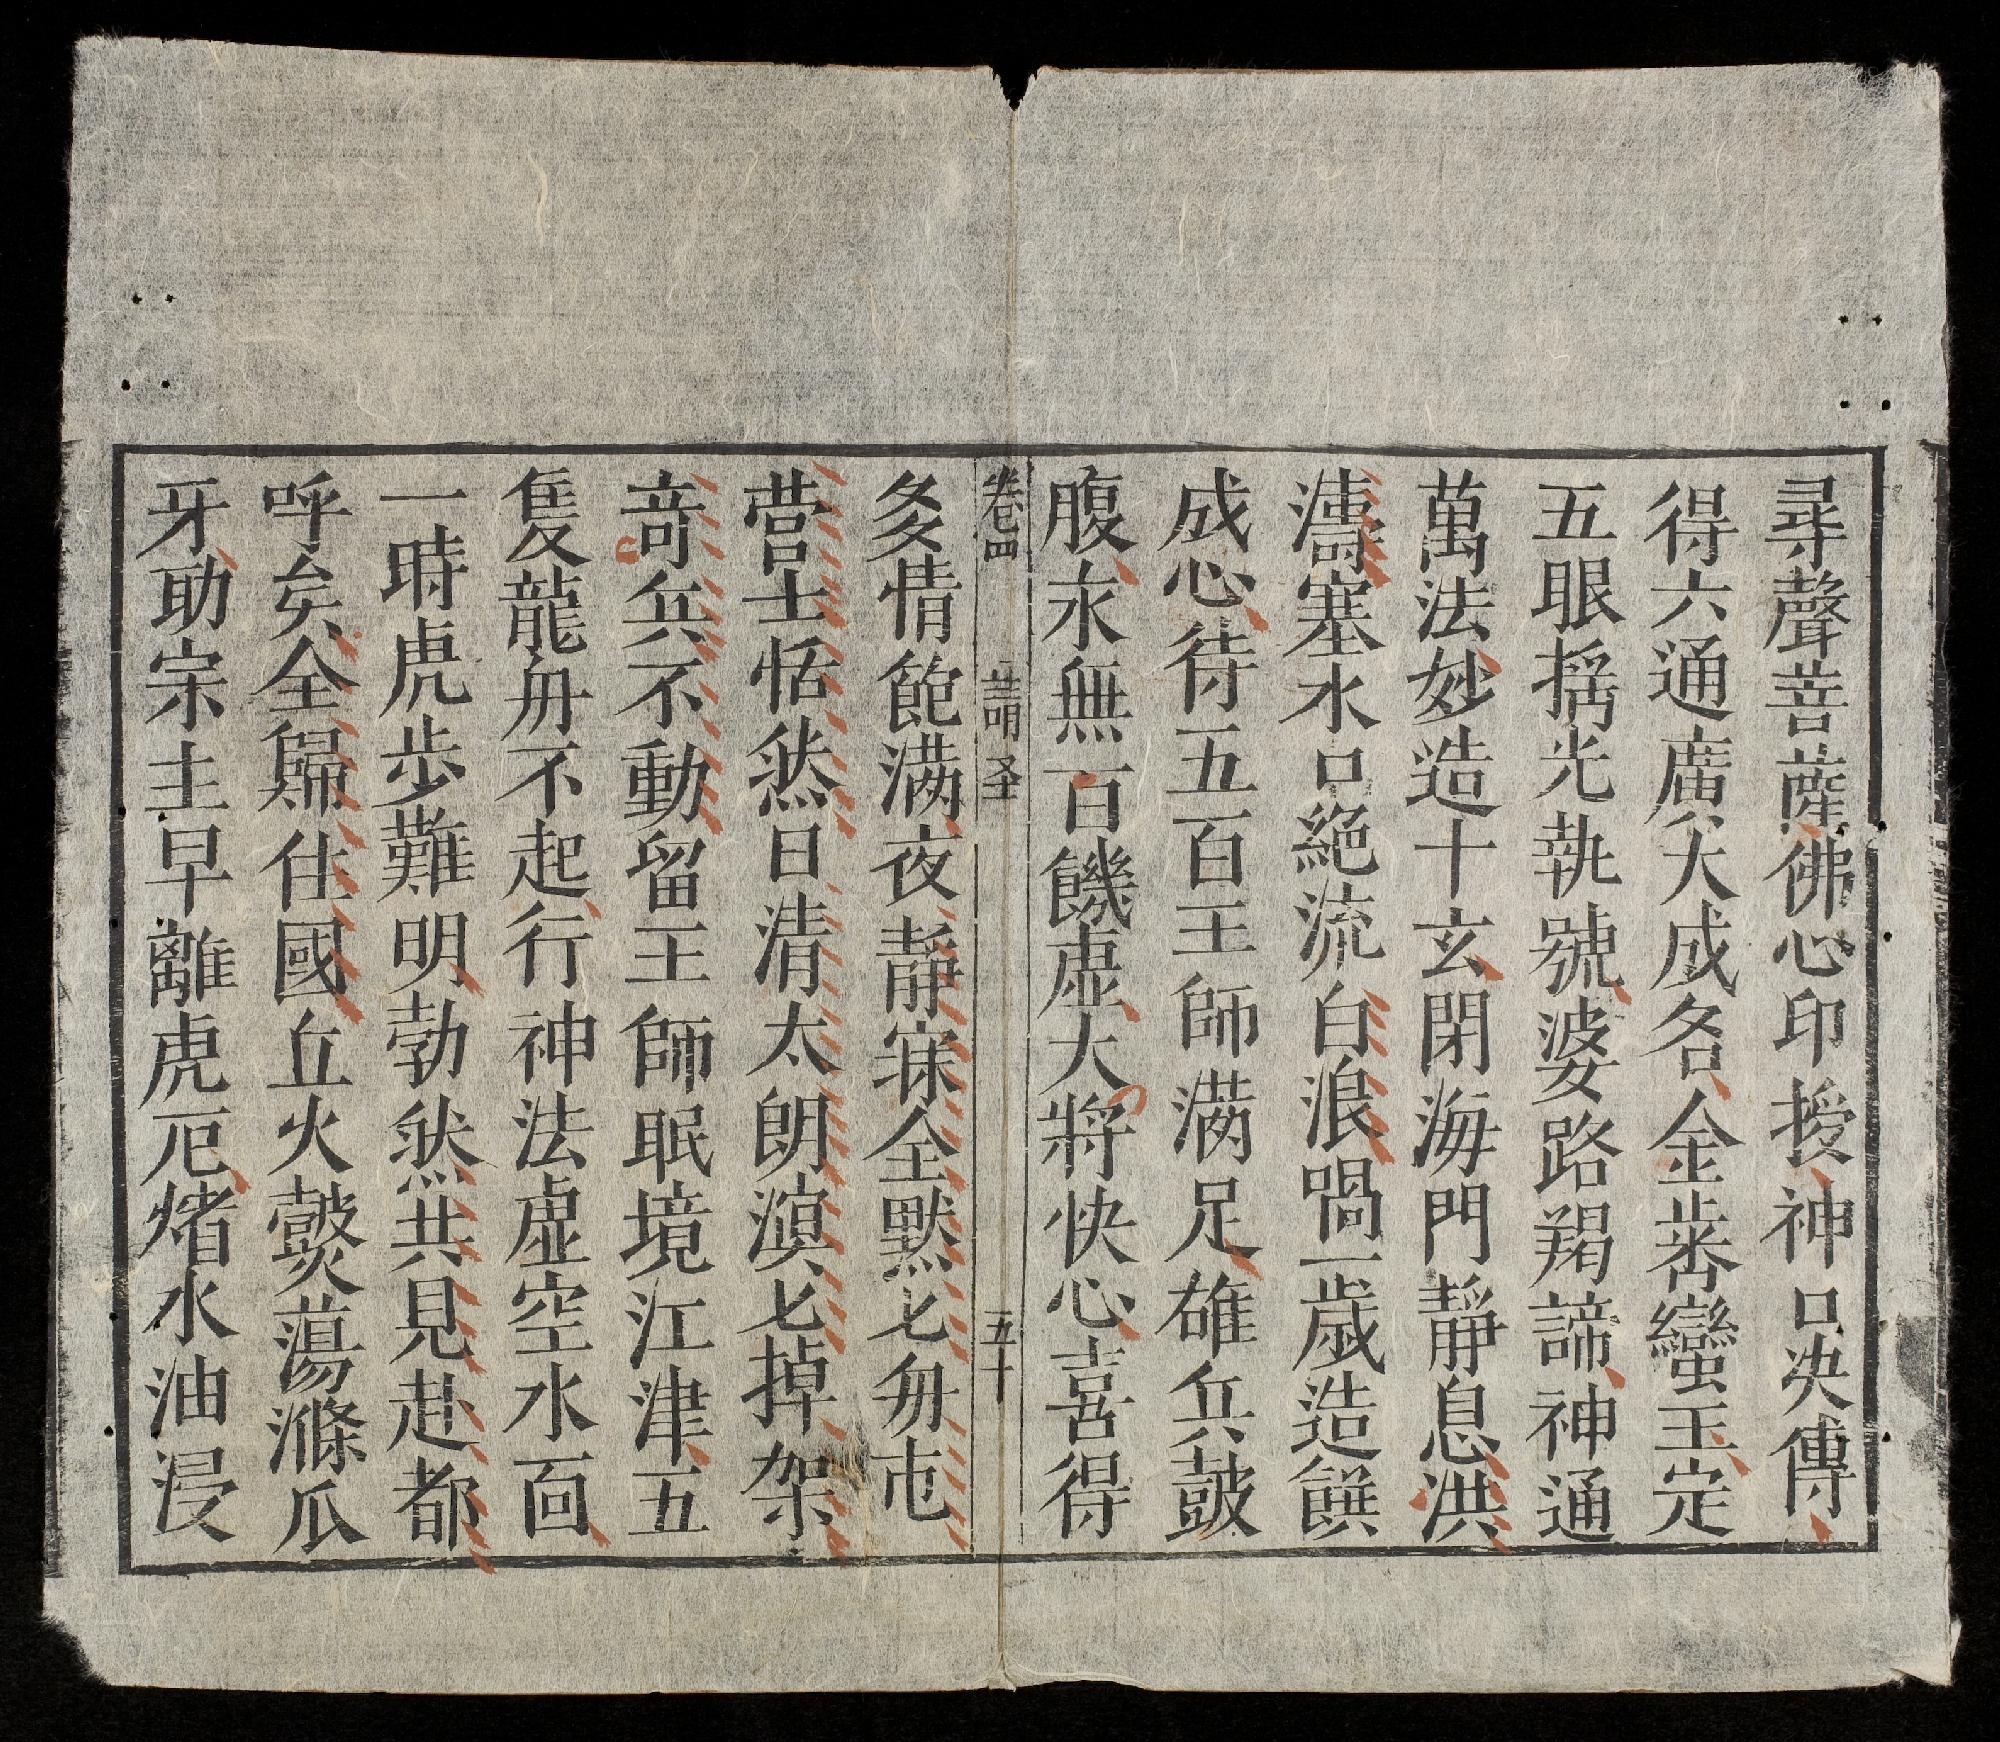 尋聲菩薩佛心印授神口决傳
得六通廣大成名金蒂蠻王定
五眼揭光執號婆路羯諦神通
萬法妙造十玄閉海門靜息洪
濤塞水口絕流白浪喎一歲造饌
成心待五百王師满足雄兵皷
腹永無百饑虛大將快心喜得
卷四 請圣 五十
多情飽满夜靜寐全黙匕毋屯
营士恬然日清太朗滇匕掉架
竒兵不動留王師眠境江津五
隻龍舟不起行神法虛空水靣
一時虎步難明勃然共見赴都
呼矣全歸住國丘火爕蕩滌瓜
牙助宗主早離虎厄㷇水油浸